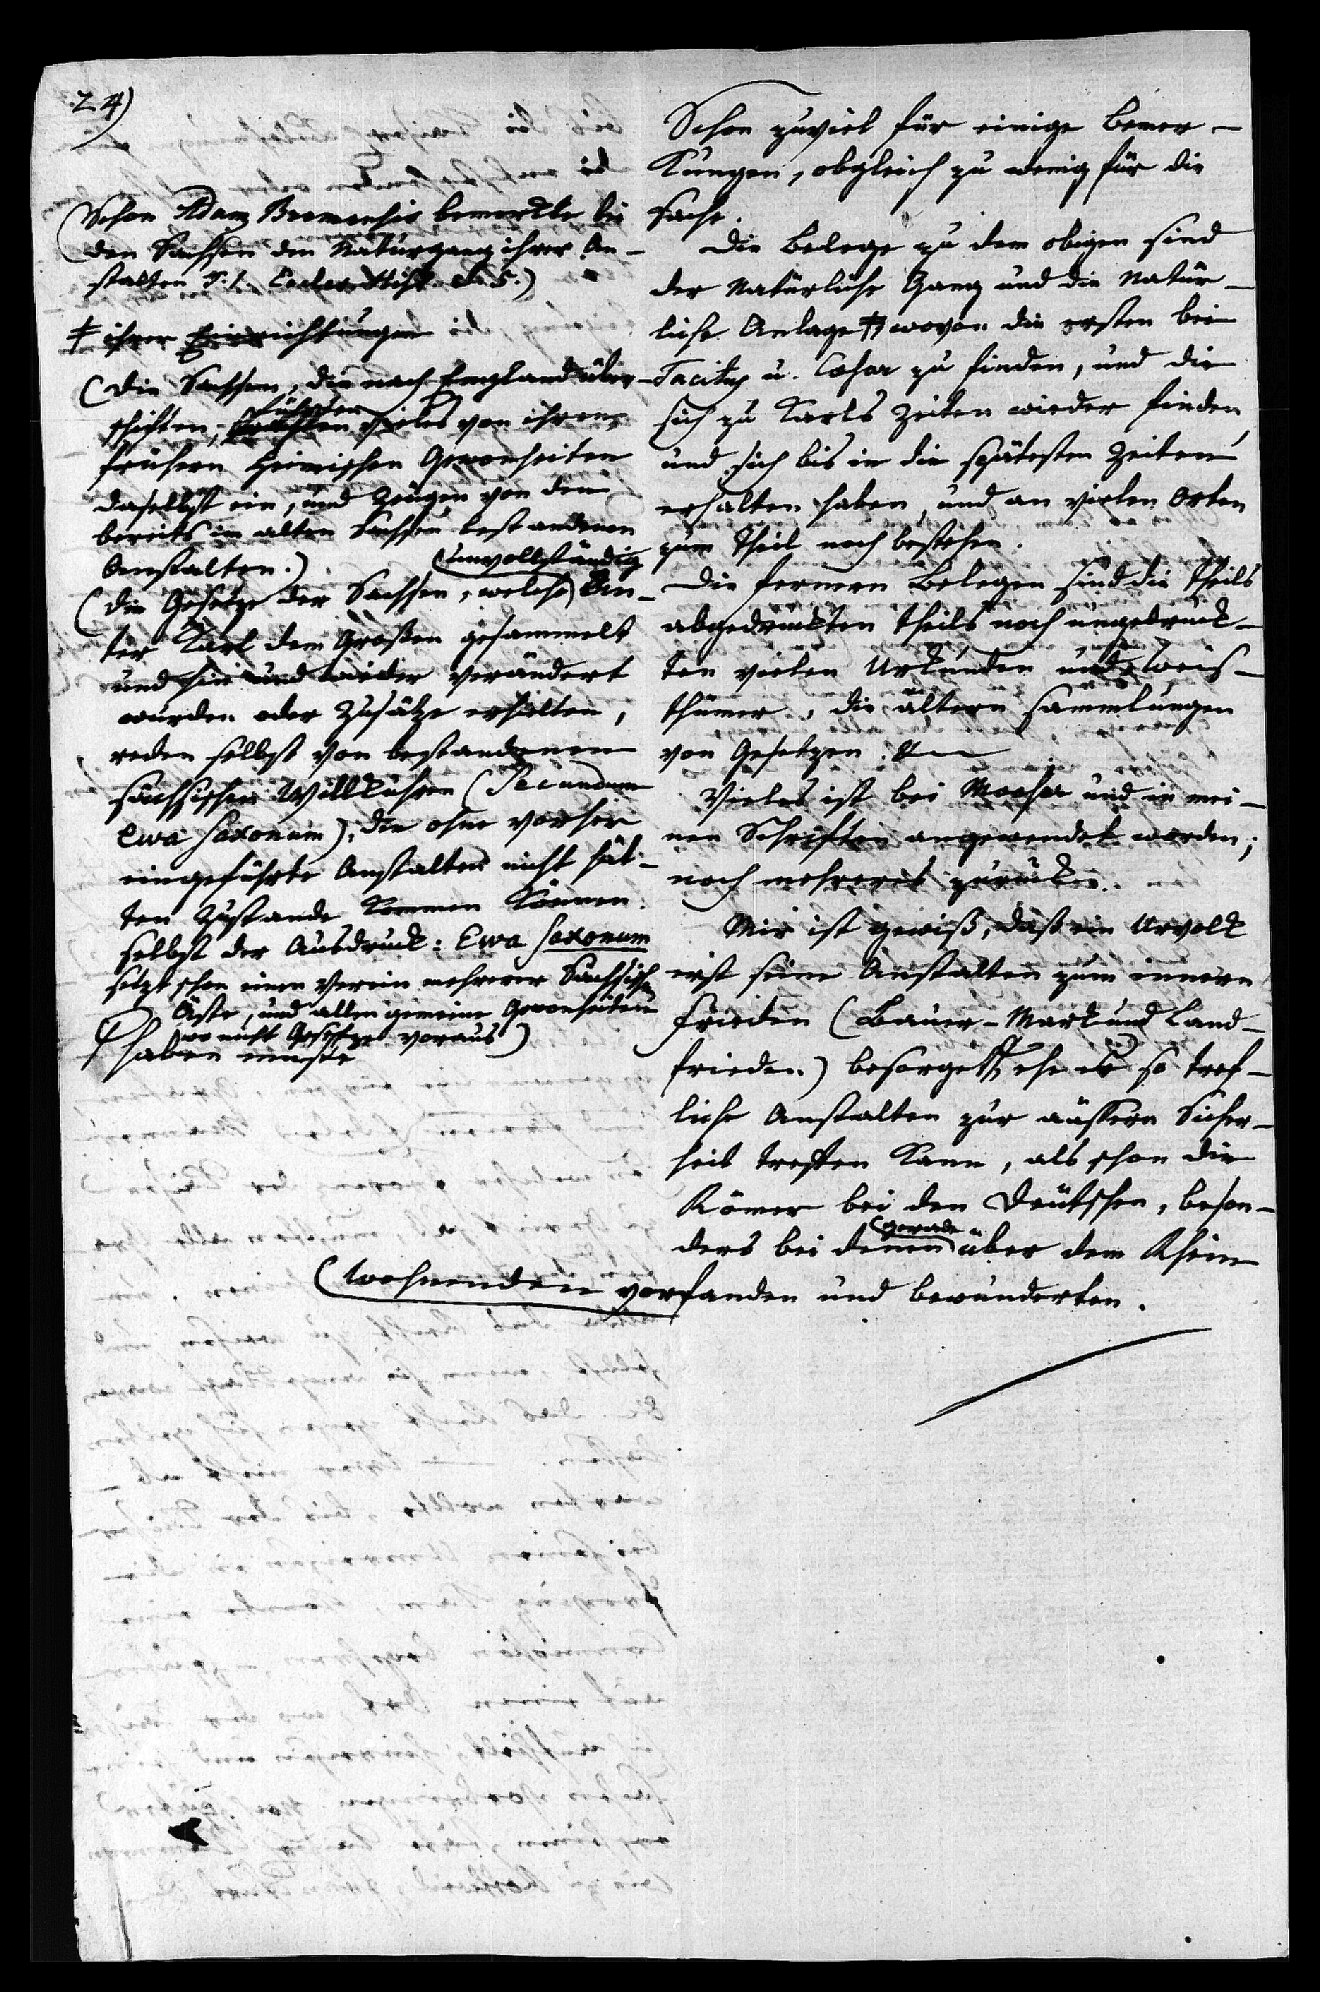 24)
(Schon Adam Bremensis bemerkte bei
den Sachsen den Naturgang ihrer An-
stalten S. 1. Eccles. Hist. c. 5.)
ihrer Einrichtungen
(Die Sachsen, die nach England über-
schifften, führten vieles von ihren
frühern heimischen Gewonheiten
daselbst ein, und zeugen von den
bereits im alten Sachsen bestandenen
Anstalten.)
(Die Gesetze der Sachsen, welche (unvollständig un-
ter Karl dem Großen gesammelt
und hin und wieder verändert
wurden oder Zusätze erhielten,
reden selbst von bestandenen
sächsischen Willkühren (Secundum
Ewa Saxonum), die ohne vorher
eingeführte Anstalten nicht hät-
ten zustande kommen können.
selbst der Ausdruck: Ewa Saxonum
setzt schon einen Verein mehrerer Sächsischen
Äste, und allen gemeine Gewonheiten
wo nicht Gesetze voraus)
haben muste
Schon zuviel für einige Bemer-
kungen, obgleich zu wenig für die
Sache.
Die Belege zu dem obigen sind
der Natürliche Gang und die Natür-
liche Anlage wovon die ersten bei
Tacitus u. Cäsar zu finden, und die
sich zu Karls Zeiten wieder finden,
und sich bis in die spätesten Zeiten
erhalten haben, und an vielen Orten
zum Theil noch bestehen.
Die fernern Belegen sind die theils
abgedruckten theils noch ungedruck-
ten vielen Urkunden und Weis-
thümer, die ältern Sammlungen
von Gesetzen
Vieles ist bei Moeser und in mei-
nen Schriften angewendet worden;
noch mehreres zurück.
Mir ist gewiß, daß ein Urvolk
erst seine Anstalten zum innern
Frieden (Bauer-Mark und Land-
frieden) besorget ehe es so tref-
liche Anstalten zur äussern Sicher-
heit treffen kann, als schon die
Römer bei den Deutschen, beson-
ders bei denen (gerade über dem Rhein
(wohnenden vorfanden und bewunderten.